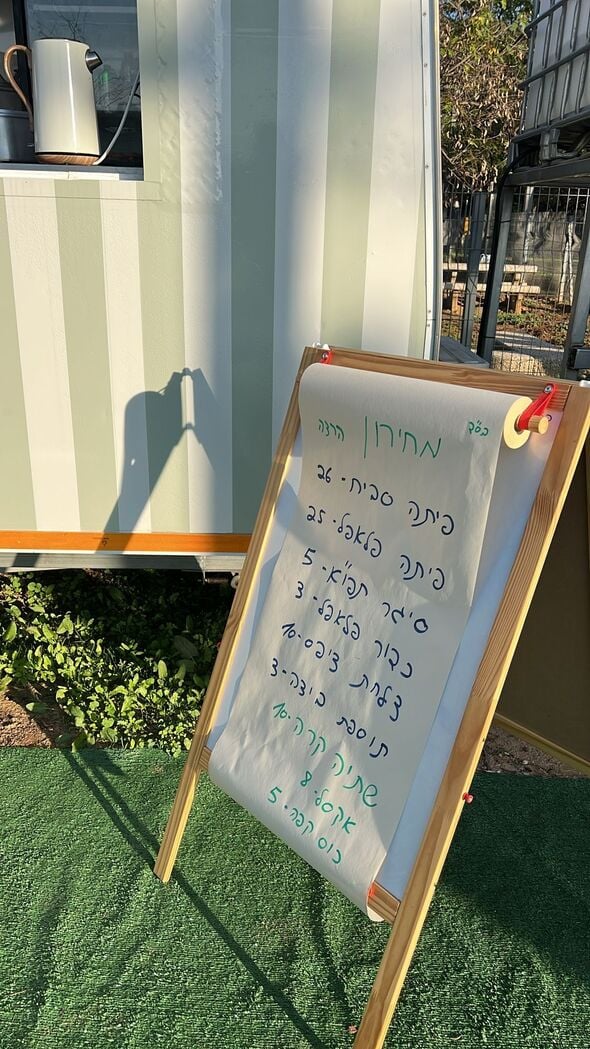 בס"ד
מחירון הרצה
פיתה סביח - 26
פיתה פלאפל - 25
סיגר תפו"א - 5
כדור פלאפל - 3
צלחת ציפס - 10
תוספת ביצה - 3
שתיה קרה - 10
אקסל - 8
כוס קפה - 5